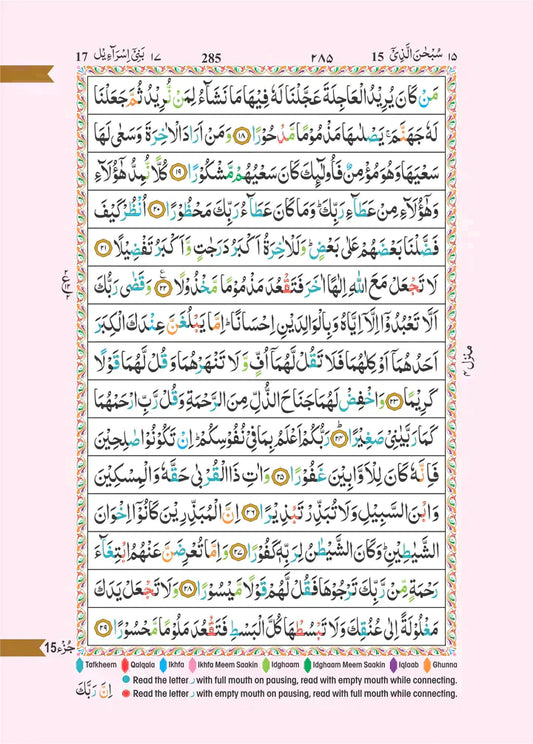 17 بَنِیْٓ اِسْرَآءِیْل ١٧ 285 ٢٨٥ 15 سُبْحٰنَ الَّذِیْٓ ١٥
مَنْ كَانَ یُرِیْدُ الْعَاجِلَةَ عَجَّلْنَا لَهٗ فِیْهَا مَا نَشَآءُ لِمَنْ نُّرِیْدُ ثُمَّ جَعَلْنَا
لَهٗ جَهَنَّمَ ۚ یَصْلٰىهَا مَذْمُوْمًا مَّدْحُوْرًا ١٨ وَمَنْ اَرَادَ الْاٰخِرَةَ وَسَعٰی لَهَا
سَعْیَهَا وَهُوَ مُؤْمِنٌ فَاُولٰٓئِكَ كَانَ سَعْیُهُمْ مَّشْكُوْرًا ١٩ كُلًّا نُّمِدُّ هٰۤؤُلَآءِ
وَهٰۤؤُلَآءِ مِنْ عَطَآءِ رَبِّكَ ؕ وَمَا كَانَ عَطَآءُ رَبِّكَ مَحْظُوْرًا ٢٠ اُنْظُرْ كَیْفَ
فَضَّلْنَا بَعْضَهُمْ عَلٰی بَعْضٍ ؕ وَلَلْاٰخِرَةُ اَكْبَرُ دَرَجٰتٍ وَّاَكْبَرُ تَفْضِیْلًا ٢١
لَا تَجْعَلْ مَعَ اللّٰهِ اِلٰهًا اٰخَرَ فَتَقْعُدَ مَذْمُوْمًا مَّخْذُوْلًا ٢٢ وَقَضٰی رَبُّكَ
اَلَّا تَعْبُدُوْۤا اِلَّاۤ اِیَّاهُ وَبِالْوَالِدَیْنِ اِحْسَانًا ؕ اِمَّا یَبْلُغَنَّ عِنْدَكَ الْكِبَرَ
اَحَدُهُمَاۤ اَوْ كِلٰهُمَا فَلَا تَقُلْ لَّهُمَاۤ اُفٍّ وَّلَا تَنْهَرْهُمَا وَقُلْ لَّهُمَا قَوْلًا
كَرِیْمًا ٢٣ وَاخْفِضْ لَهُمَا جَنَاحَ الذُّلِّ مِنَ الرَّحْمَةِ وَقُلْ رَّبِّ ارْحَمْهُمَا
كَمَا رَبَّیٰنِیْ صَغِیْرًا ٢٤ رَبُّكُمْ اَعْلَمُ بِمَا فِیْ نُفُوْسِكُمْ ؕ اِنْ تَكُوْنُوْا صٰلِحِیْنَ
فَاِنَّهٗ كَانَ لِلْاَوَّابِیْنَ غَفُوْرًا ٢٥ وَاٰتِ ذَا الْقُرْبٰی حَقَّهٗ وَالْمِسْكِیْنَ
وَابْنَ السَّبِیْلِ وَلَا تُبَذِّرْ تَبْذِیْرًا ٢٦ اِنَّ الْمُبَذِّرِیْنَ كَانُوْۤا اِخْوَانَ
الشَّیٰطِیْنِ ؕ وَكَانَ الشَّیْطٰنُ لِرَبِّهٖ كَفُوْرًا ٢٧ وَاِمَّا تُعْرِضَنَّ عَنْهُمُ ابْتِغَآءَ
رَحْمَةٍ مِّنْ رَّبِّكَ تَرْجُوْهَا فَقُلْ لَّهُمْ قَوْلًا مَّیْسُوْرًا ٢٨ وَلَا تَجْعَلْ یَدَكَ
مَغْلُوْلَةً اِلٰی عُنُقِكَ وَلَا تَبْسُطْهَا كُلَّ الْبَسْطِ فَتَقْعُدَ مَلُوْمًا مَّحْسُوْرًا ٢٩
منزل ٤
15 جُزْء
Tafkheem Qalqala Ikhfa Ikhfa Meem Saakin Idghaam Idghaam Meem Saakin Iqlaab Ghunna
Read the letter ر with full mouth on pausing, read with empty mouth while connecting.
اِنَّ رَبَّكَ
Read the letter ر with empty mouth on pausing, read with full mouth while connecting.